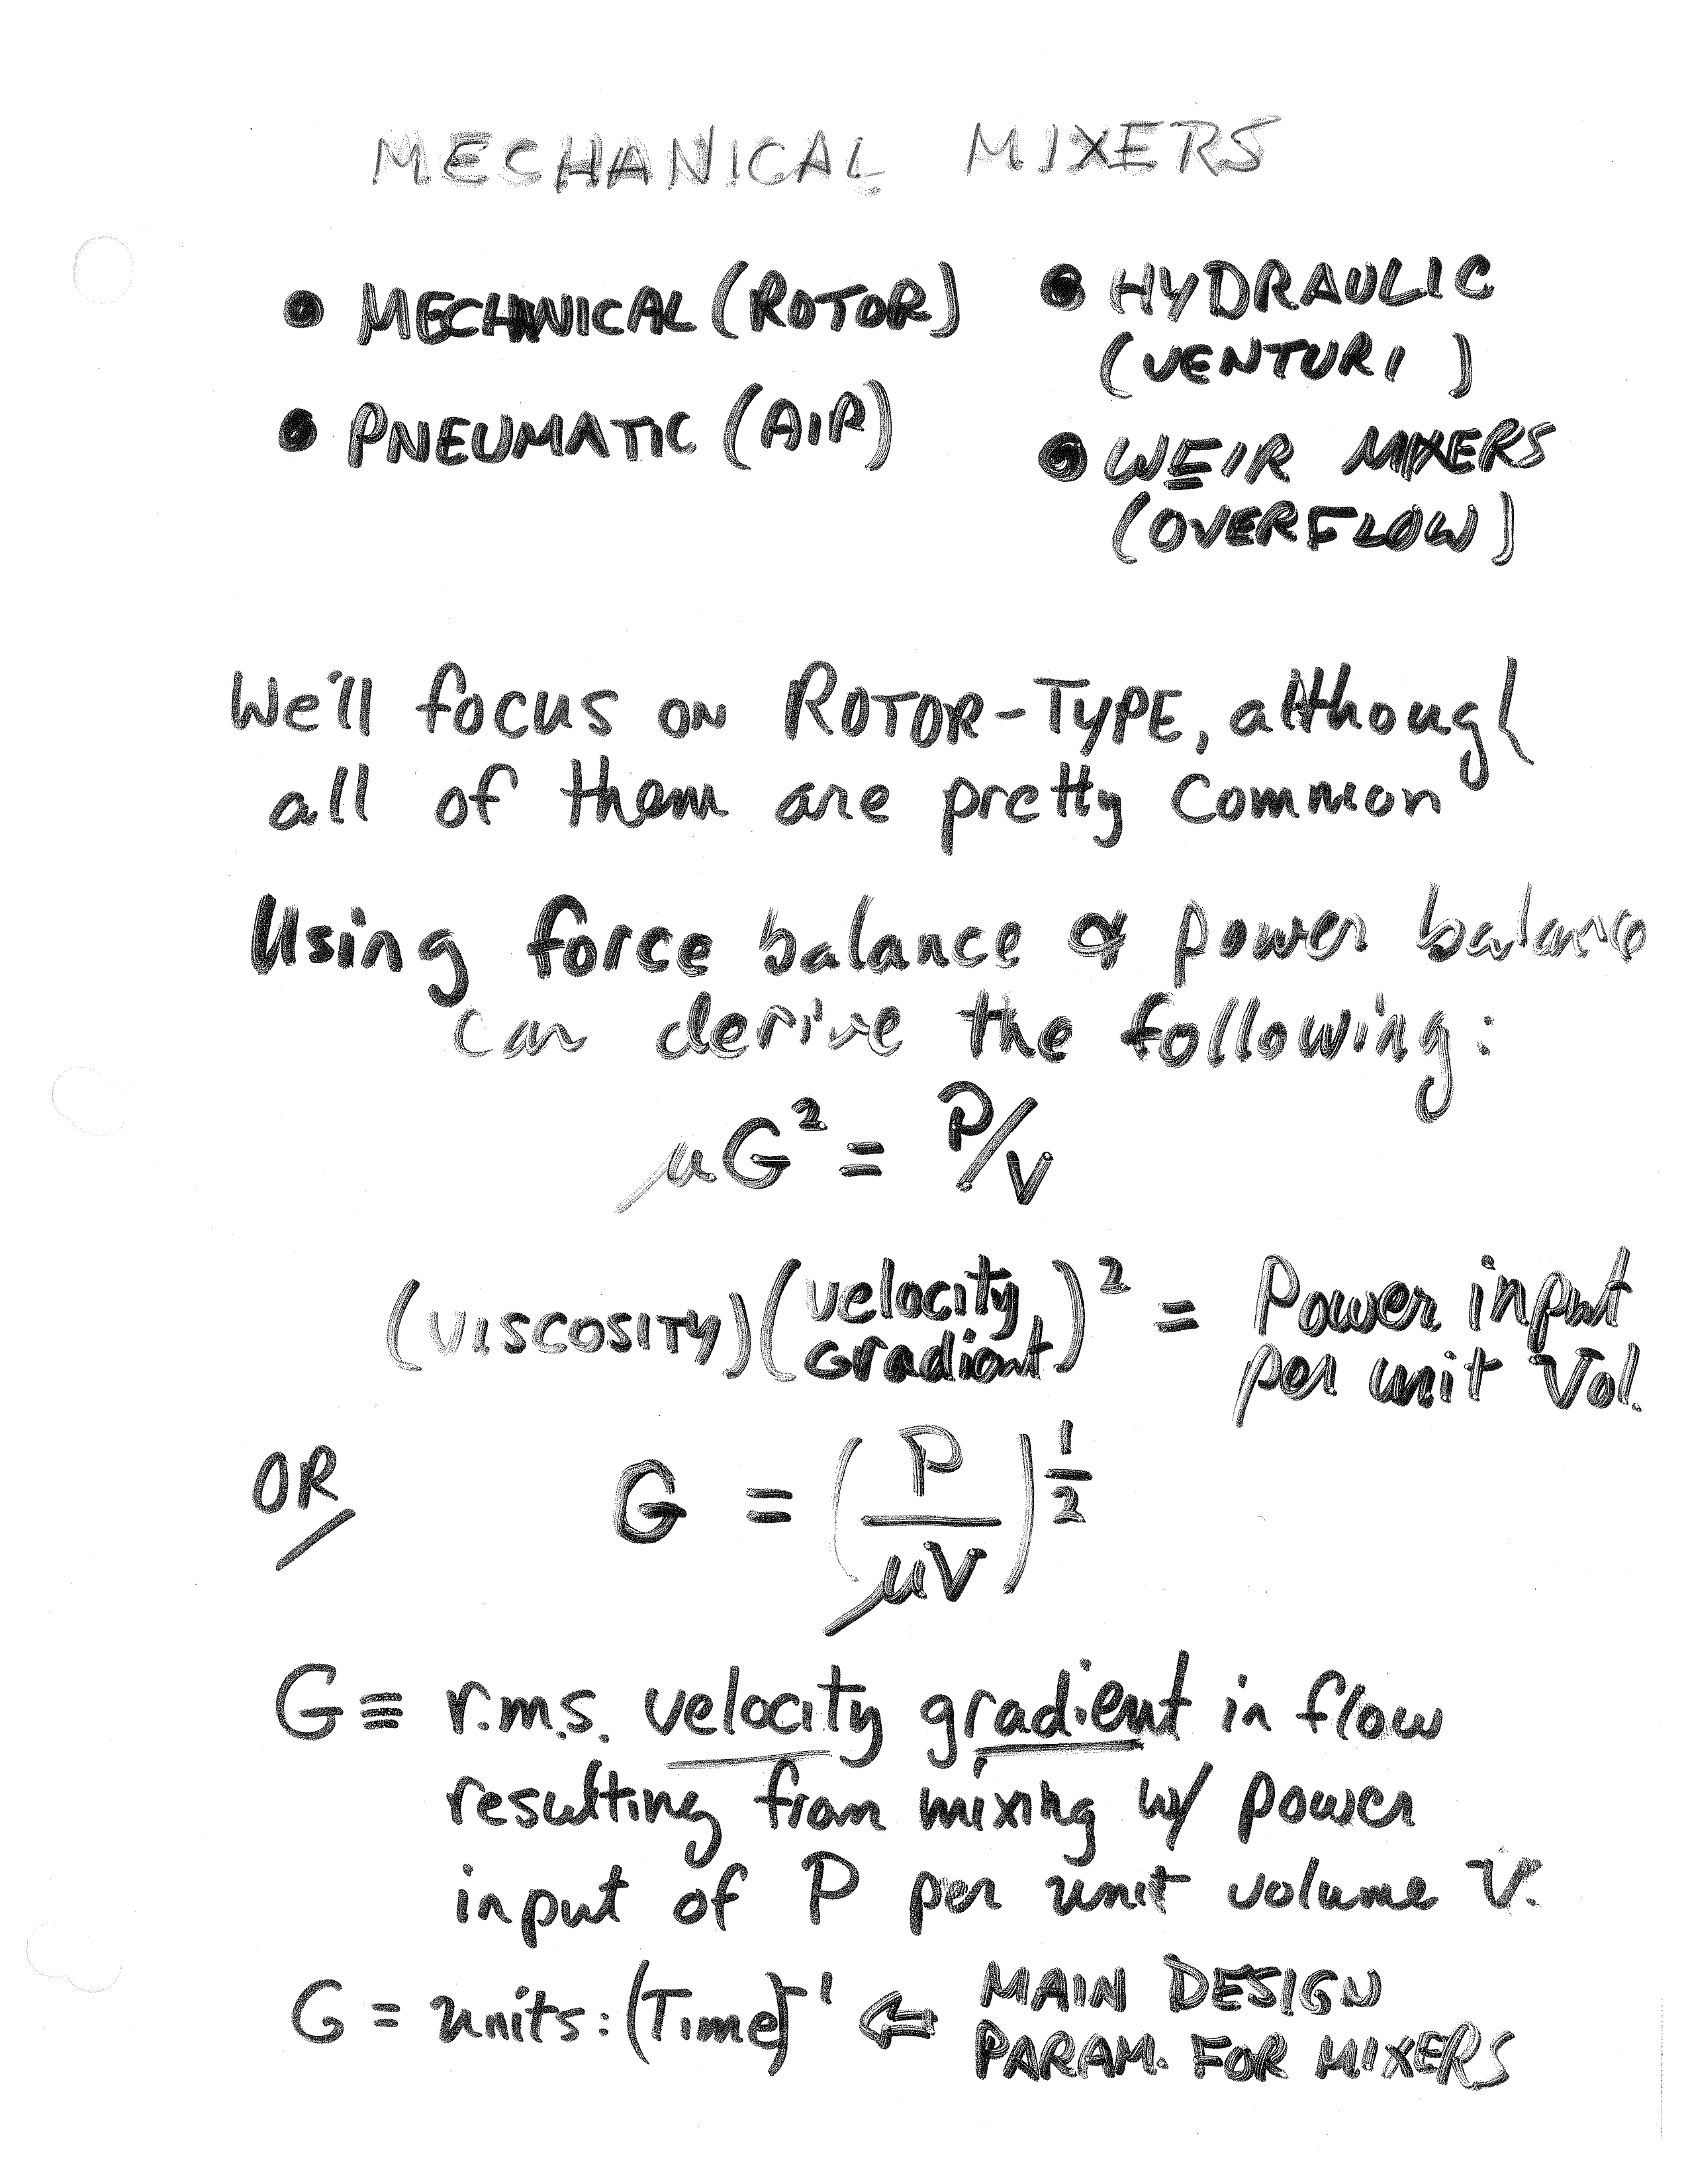 MECHANICAL MIXERS
• MECHANICAL (ROTOR)
• PNEUMATIC (AIR)
• HYDRAULIC
(VENTURI)
• WEIR MIXERS
(OVERFLOW)
We'll focus ON ROTOR-TYPE, although
all of them are pretty common
Using force balance & power balance
can derive the following:
μG² = P/V
(VISCOSITY)(velocity gradient)² = Power input
per unit Vol.
OR G = (P/μV)^1/2
G ≡ r.m.s. velocity gradient in flow
resulting from mixing w/ power
input of P per unit volume V.
G = units: (Time)⁻¹ ⇐ MAIN DESIGN
PARAM. FOR MIXERS